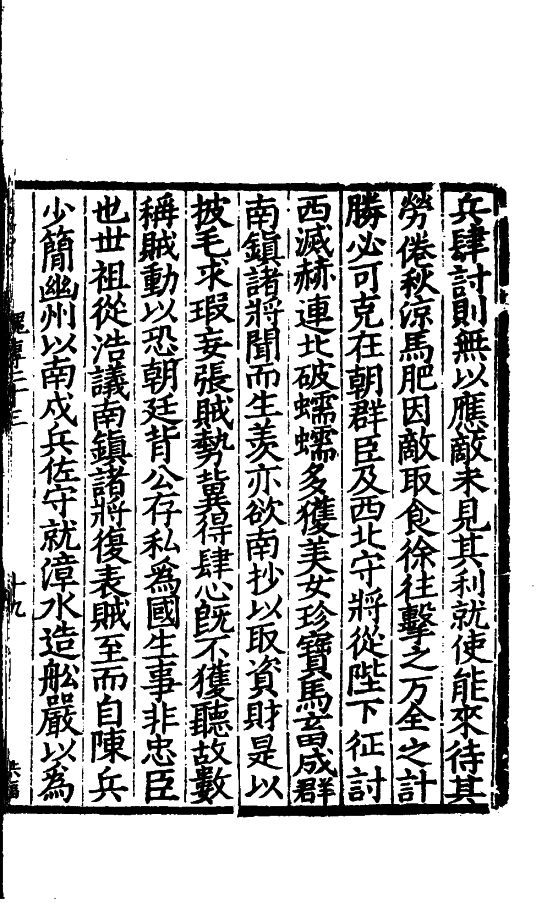 兵肆討則無以應敵未見其利就使能來待其
勞倦秋涼馬肥因敵取食徐往擊之万全之計
勝必可克在朝群臣及西北守將從陛下征討
西滅赫連北破蠕蠕多獲美女珍寶馬畜成群
南鎮諸將聞而生羨亦欲南抄以取資財是以
披毛求瑕妄張賊勢冀得肆心旣不獲聽故數
稱賊動以恐朝廷背公存私爲國生事非忠臣
也世祖從浩議南鎮諸將復表賊至而自陳兵
少簡幽州以南戍兵佐守就漳水造舩嚴以爲
傳二十三
十九